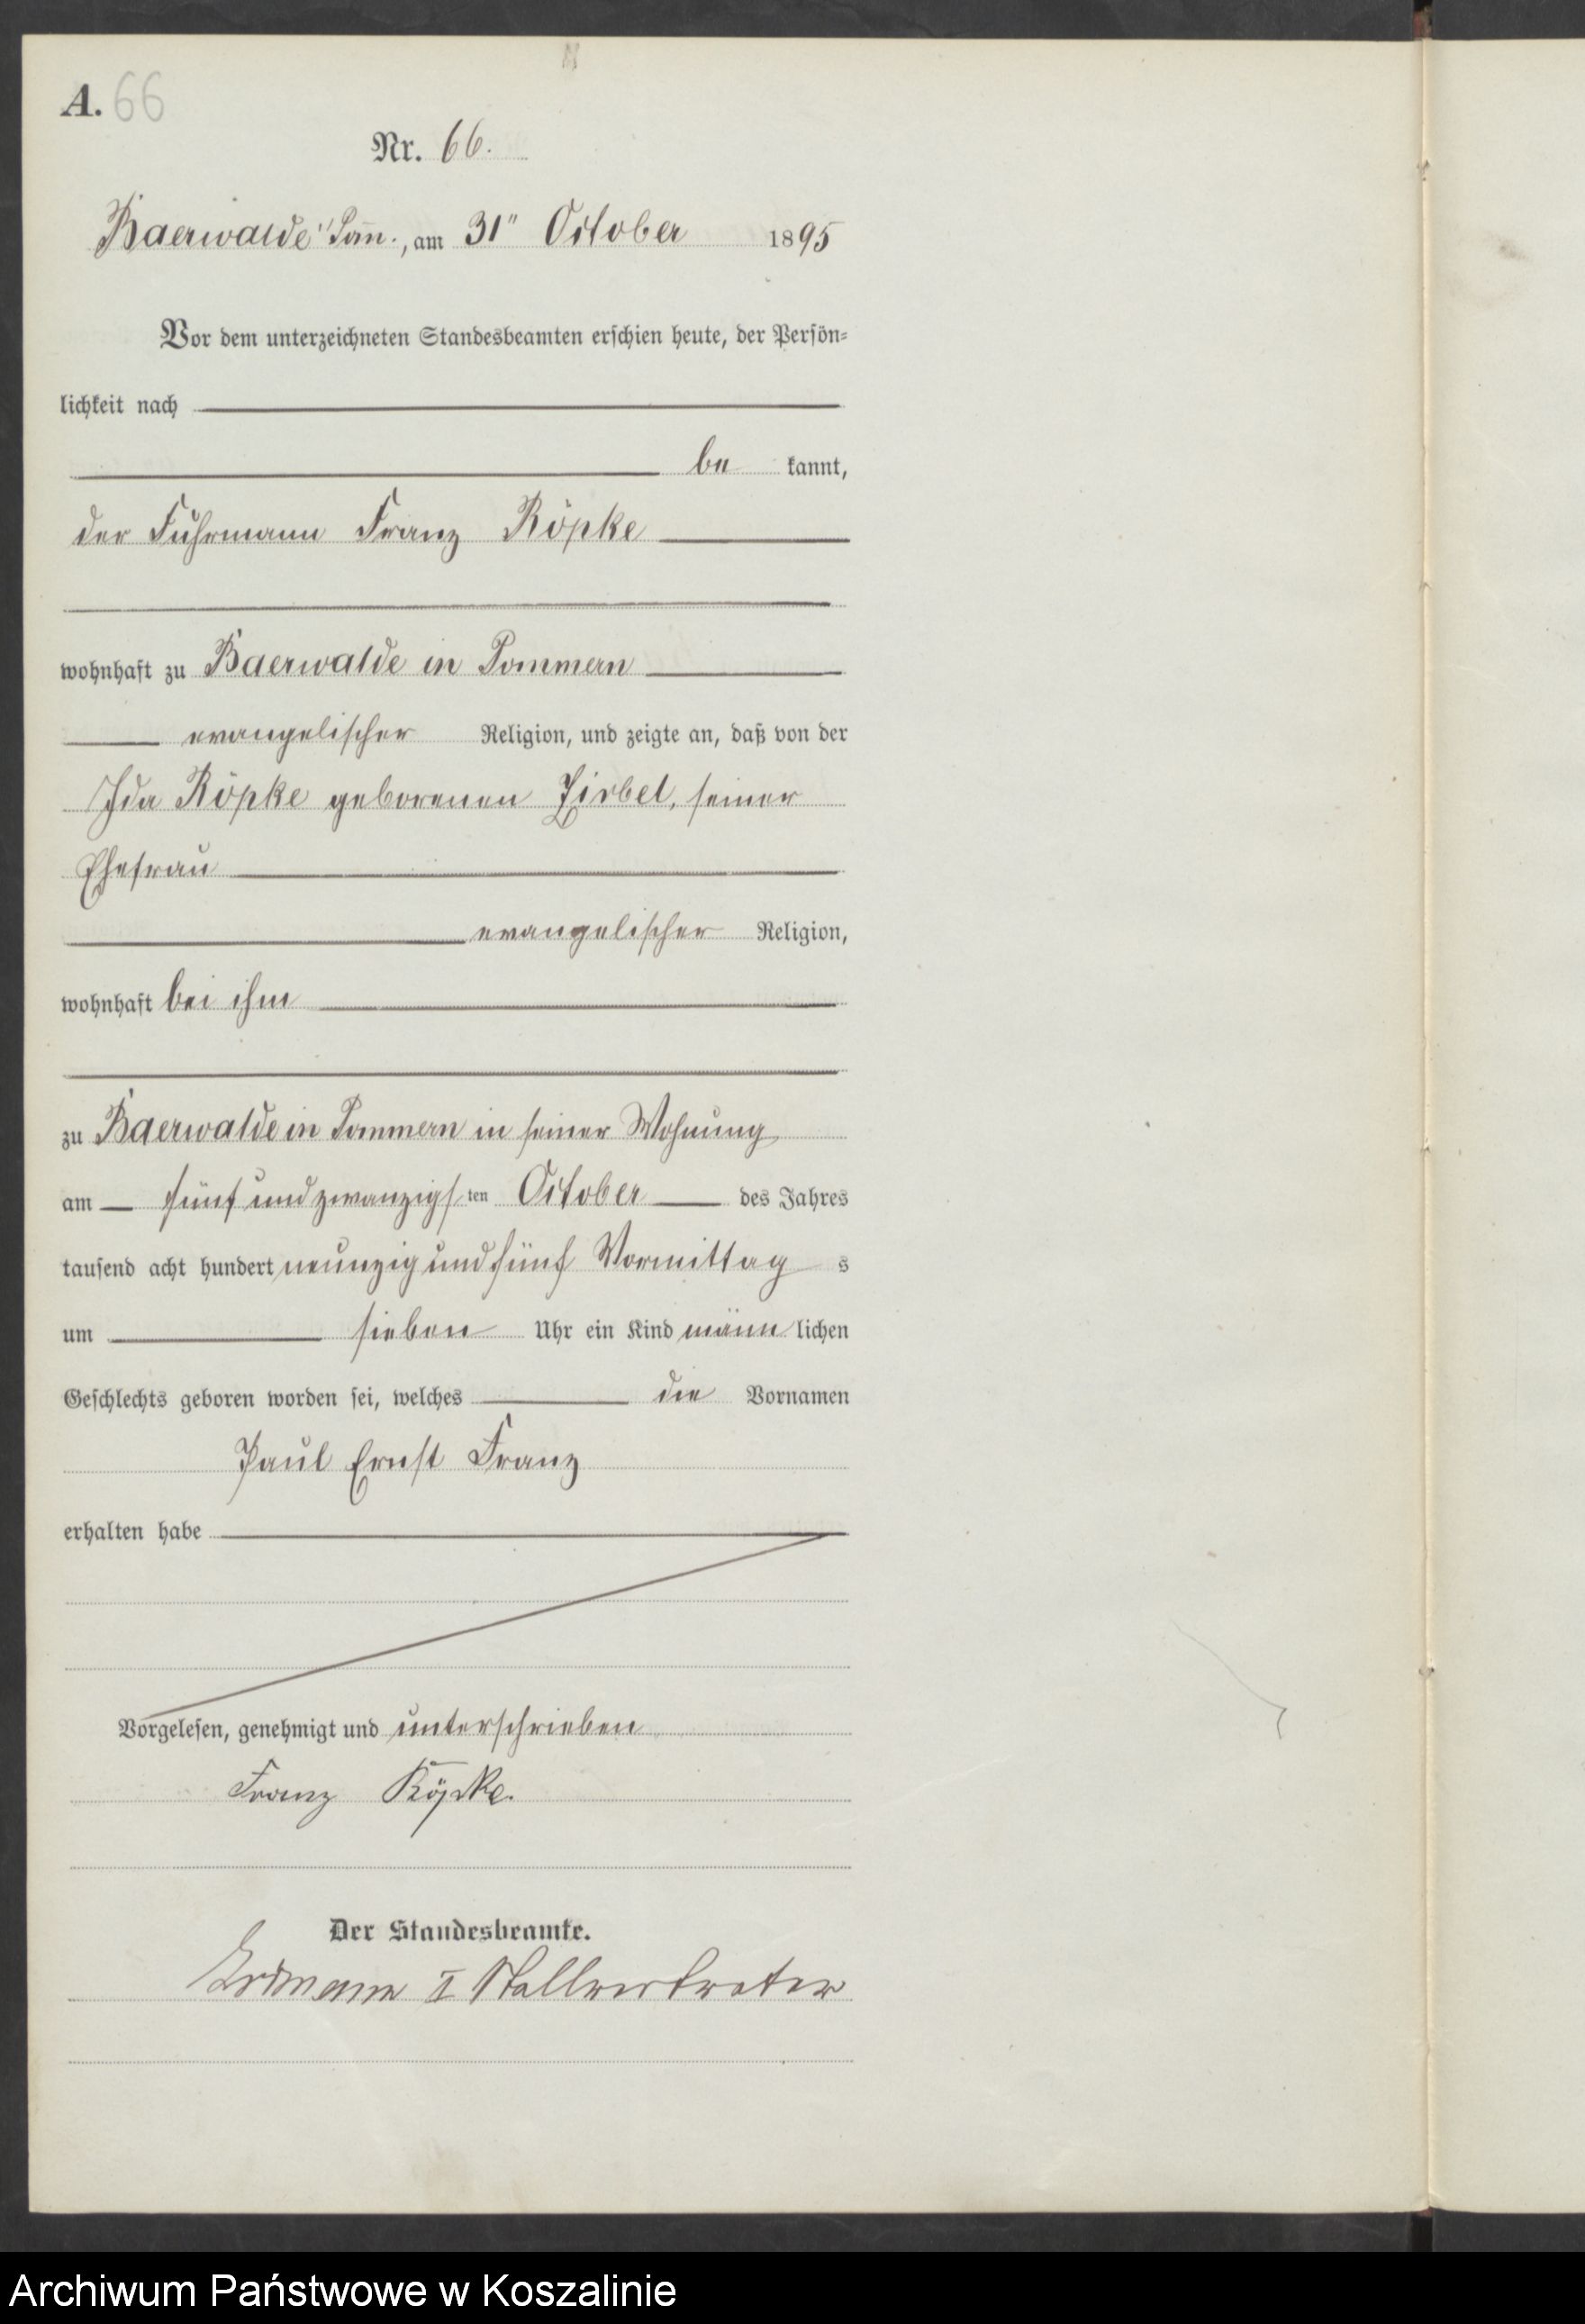 A. 66
Nr. 66.
Baerwalde i/Pom̄., am 31" October 1895
Vor dem unterzeichneten Standesbeamten erschien heute, der Persön-
lichkeit nach
be kannt,
der Fuhrmann Franz Röpke
wohnhaft zu Baerwalde in Pommern
evangelischer Religion, und zeigte an, daß von der
Ida Röpke geborenen Zirbel, seiner
Ehefrau
evangelischer Religion,
wohnhaft bei ihm
zu Baerwalde in Pommern in seiner Wohnung
am fünf und zwanzigsten October des Jahres
tausend acht hundert neunzig und fünf Vormittag s
um sieben Uhr ein Kind männ lichen
Geschlechts geboren worden sei, welches die Vornamen
Paul Ernst Franz
erhalten habe
Vorgelesen, genehmigt und unterschrieben
Franz Röpke.
Der Standesbeamte.
Erdmann II Stellvertreter
Archiwum Państwowe w Koszalinie